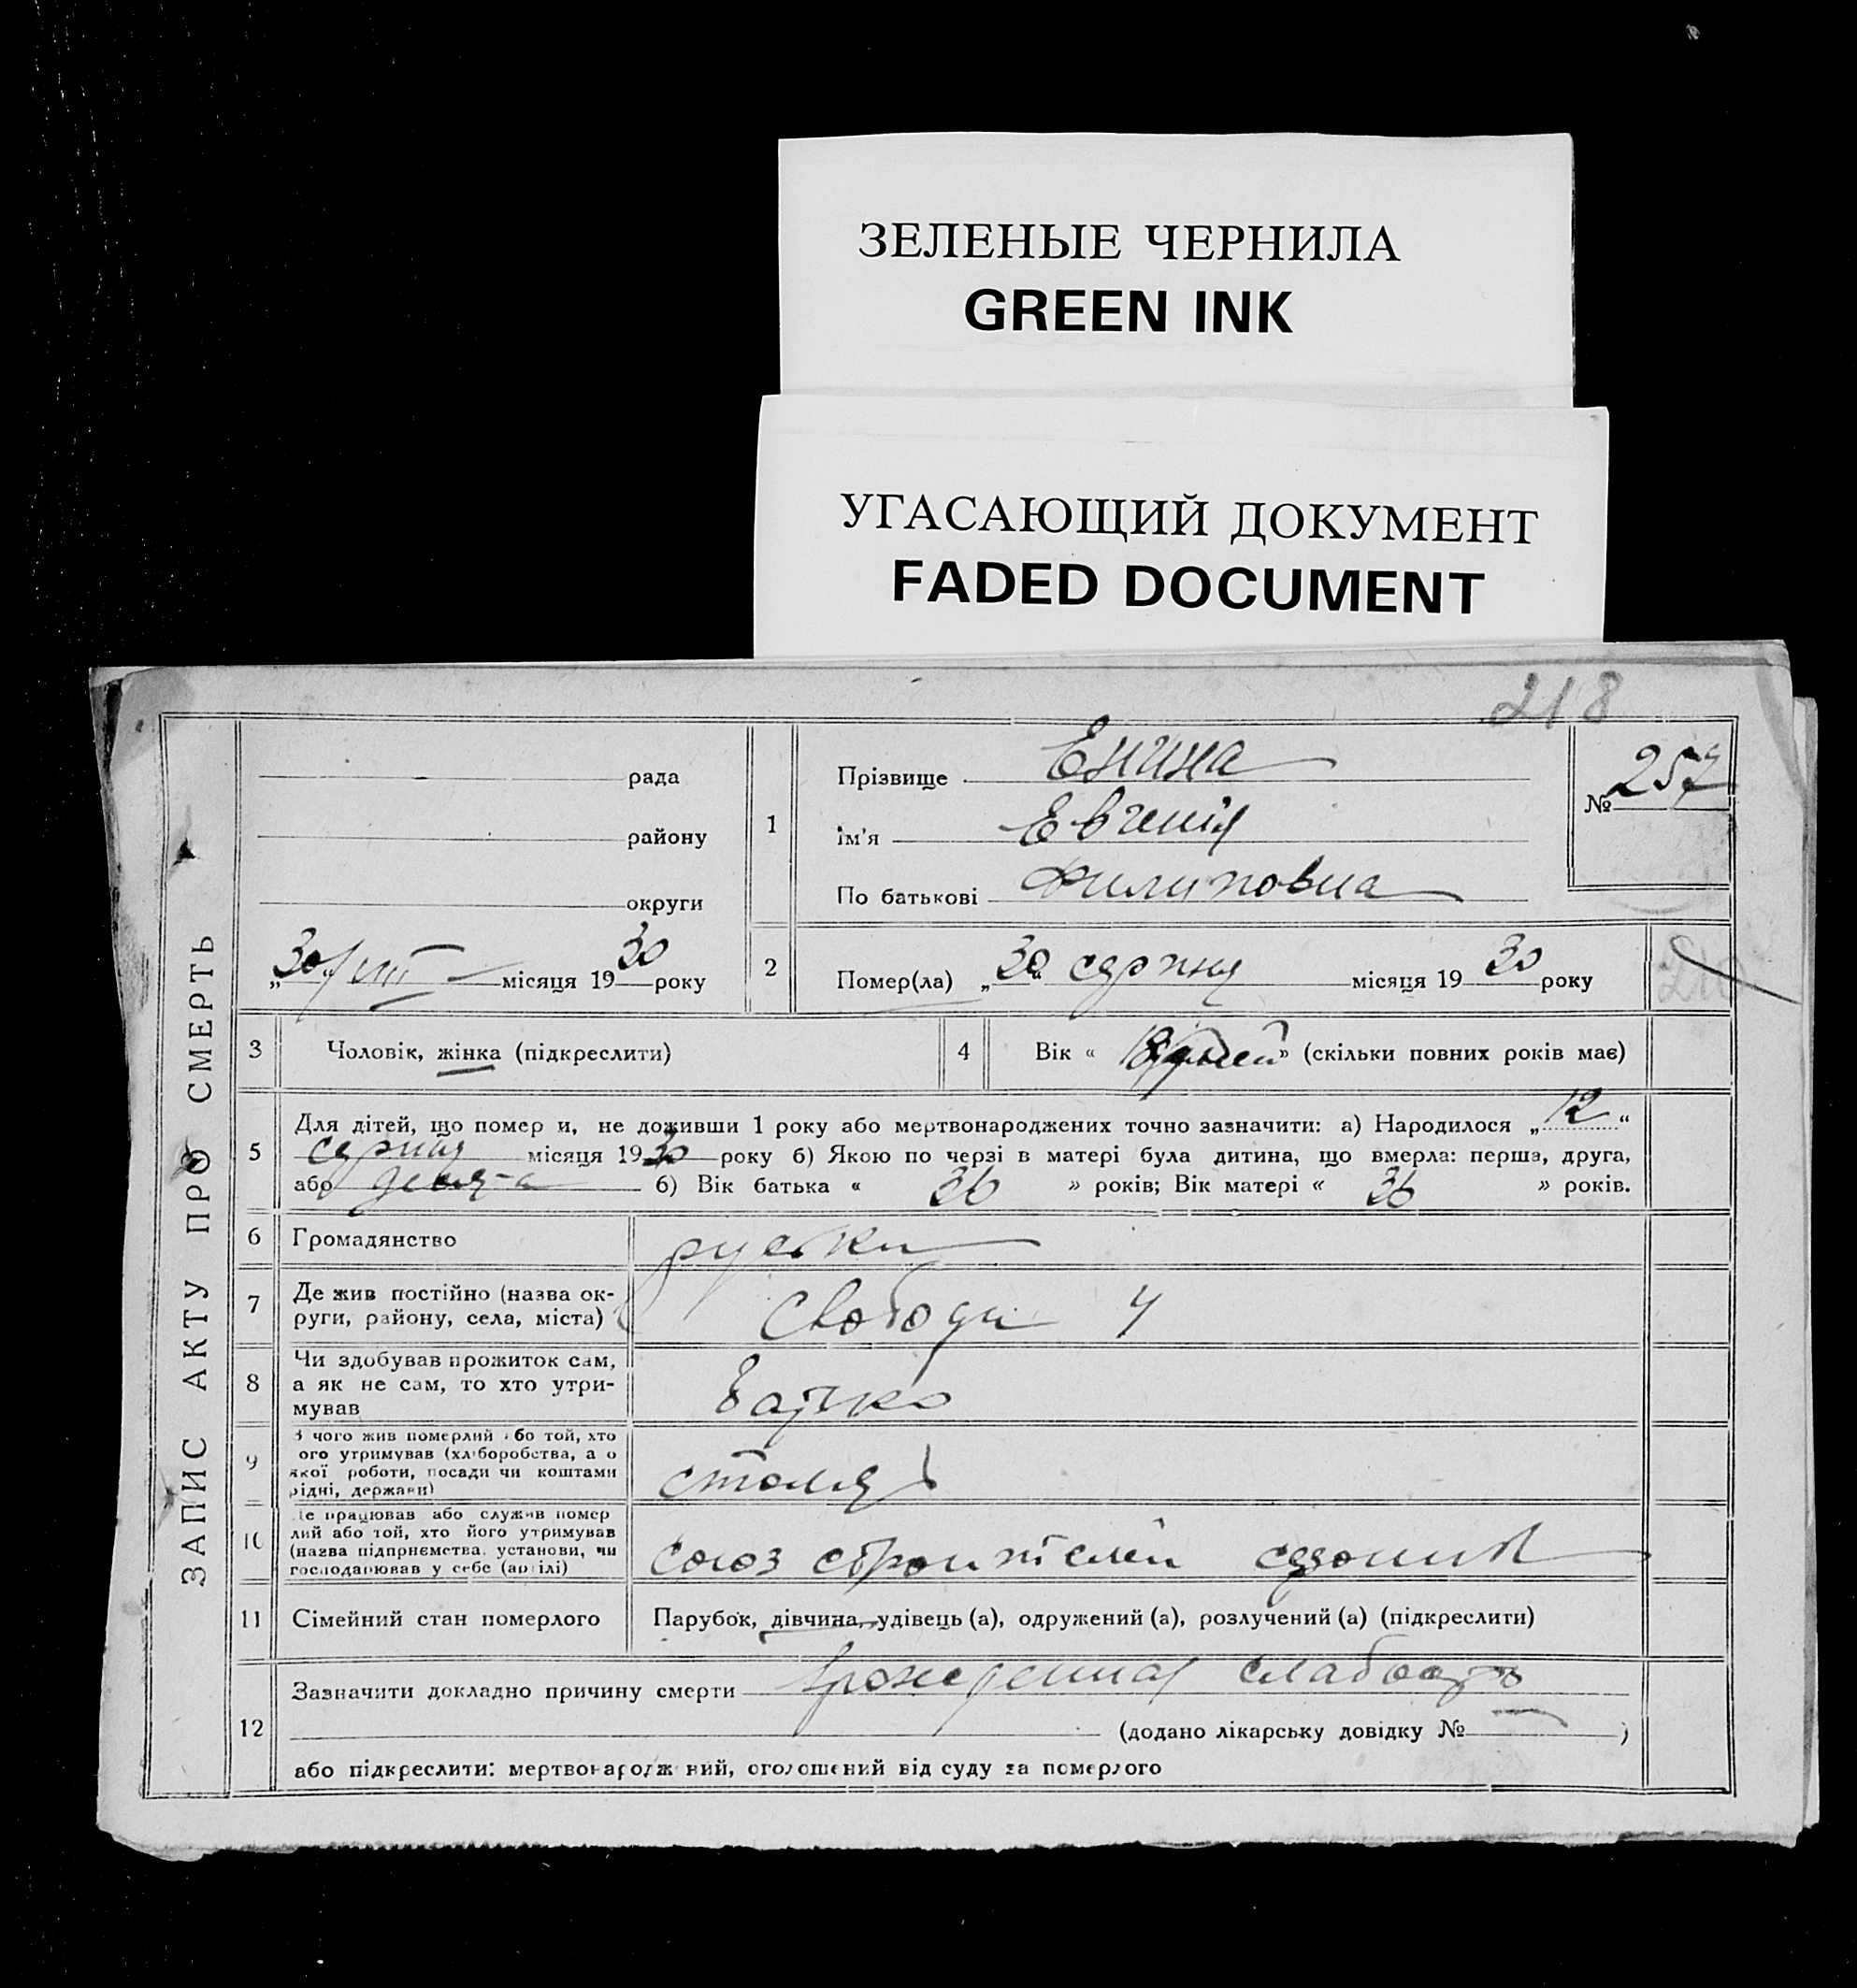 ЗЕЛЕНЫЕ ЧЕРНИЛА
GREEN INK
УГАСАЮЩИЙ ДОКУМЕНТ
FADED DOCUMENT
218
ЗАПИС АКТУ ПРО СМЕРТЬ
рада
району
округи
„30“/VIII місяця 1930 року
1
Прізвище Енина
Ім'я Евгенія
По батькові Филиповна
№ 257
2
Помер(ла) „30“ серпня місяця 1930 року
210
3 Чоловік, жінка (підкреслити)
4 Вік « 18 дней » (скільки повних років має)
5 Для дітей, що помер и, не доживши 1 року або мертвонароджених точно зазначити: а) Народилося „12“
серпня місяця 1930 року б) Якою по черзі в матері була дитина, що вмерла: перша, друга,
або девята б) Вік батька « 36 » років; Вік матері « 36 » років.
6 Громадянство руски
7 Де жив постійно (назва ок-
руги, району, села, міста) Свободи 4
8 Чи здобував прожиток сам,
а як не сам, то хто утри-
мував батько
9 З чого жив померлий або той, хто
ого утримував (хліборобства, а о
якої роботи, посади чи коштами
рідні, держави) столяр
10 Де працював або служив помер
лий або той, хто його утримував
(назва підприємства, установи, чи
господарював у себе (артілі) союз строителей сезонник
11 Сімейний стан померлого Парубок, дівчина, удівець (а), одружений (а), розлучений (а) (підкреслити)
12 Зазначити докладно причину смерти врожденная слабость
(додано лікарську довідку № — )
або підкреслити: мертвонародж ний, оголошений від суду за померлого